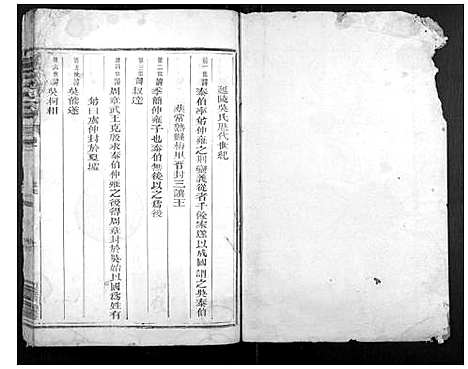 延陵吳氏歷代世紀
第一世諱泰伯率弟仲雍之荆蠻義從者千餘家遂以成國謂之吳泰伯
葬常熟縣梅里晋封三讓王
第二世諱季簡仲雍子也泰伯無後以之爲後
第三世諱叔達
第四世諱周章武王克殷求泰伯仲雍之後得周章封於吳始以國爲姓有
弟曰虞仲封於夏墟
第五世諱吳熊遂
第六世諱吳柯相